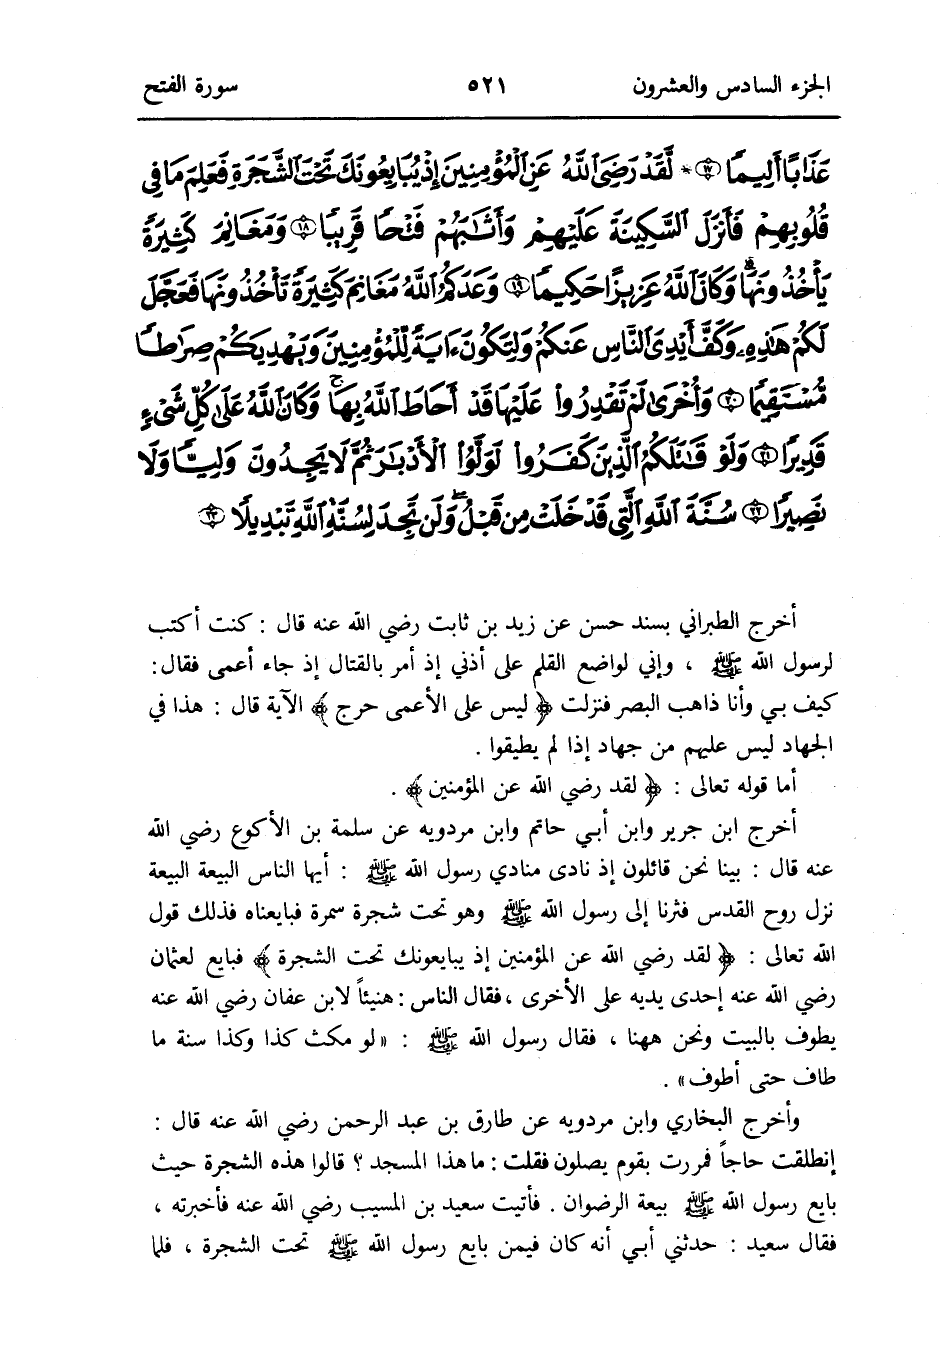 الجزء السادس والعشرون ٥٢١ سورة الفتح
عَذَابًا أَلِيمًا ﴿١٧﴾ * لَّقَدْ رَضِيَ ٱللَّهُ عَنِ ٱلْمُؤْمِنِينَ إِذْ يُبَايِعُونَكَ تَحْتَ ٱلشَّجَرَةِ فَعَلِمَ مَا فِي
قُلُوبِهِمْ فَأَنزَلَ ٱلسَّكِينَةَ عَلَيْهِمْ وَأَثَٰبَهُمْ فَتْحًا قَرِيبًا ﴿١٨﴾ وَمَغَانِمَ كَثِيرَةً
يَأْخُذُونَهَا ۗ وَكَانَ ٱللَّهُ عَزِيزًا حَكِيمًا ﴿١٩﴾ وَعَدَكُمُ ٱللَّهُ مَغَانِمَ كَثِيرَةً تَأْخُذُونَهَا فَعَجَّلَ
لَكُمْ هَٰذِهِۦ وَكَفَّ أَيْدِيَ ٱلنَّاسِ عَنكُمْ وَلِتَكُونَ ءَايَةً لِّلْمُؤْمِنِينَ وَيَهْدِيَكُمْ صِرَٰطًا
مُّسْتَقِيمًا ﴿٢٠﴾ وَأُخْرَىٰ لَمْ تَقْدِرُوا۟ عَلَيْهَا قَدْ أَحَاطَ ٱللَّهُ بِهَا ۚ وَكَانَ ٱللَّهُ عَلَىٰ كُلِّ شَيْءٍ
قَدِيرًا ﴿٢١﴾ وَلَوْ قَٰتَلَكُمُ ٱلَّذِينَ كَفَرُوا۟ لَوَلَّوُا۟ ٱلْأَدْبَٰرَ ثُمَّ لَا يَجِدُونَ وَلِيًّا وَلَا
نَصِيرًا ﴿٢٢﴾ سُنَّةَ ٱللَّهِ ٱلَّتِي قَدْ خَلَتْ مِن قَبْلُ ۖ وَلَن تَجِدَ لِسُنَّةِ ٱللَّهِ تَبْدِيلًا ﴿٢٣﴾
أخرج الطبراني بسند حسن عن زيد بن ثابت رضي الله عنه قال : كنت أكتب
لرسول الله ﷺ ، وإني لواضع القلم على أذني إذ أمر بالقتال إذ جاء أعمى فقال :
كيف بـي وأنا ذاهب البصر فنزلت ﴿ ليس على الأعمى حرج ﴾ الآية قال : هذا في
الجهاد ليس عليهم من جهاد إذا لم يطيقوا .
أما قوله تعالى : ﴿ لقد رضي الله عن المؤمنين ﴾ .
أخرج ابن جرير وابن أبـي حاتم وابن مردويه عن سلمة بن الأكوع رضي الله
عنه قال : بينا نحن قائلون إذ نادى منادي رسول الله ﷺ : أيها الناس البيعة البيعة
نزل روح القدس فثرنا إلى رسول الله ﷺ وهو تحت شجرة سمرة فبايعناه فذلك قول
الله تعالى : ﴿ لقد رضي الله عن المؤمنين إذ يبايعونك تحت الشجرة ﴾ فبايع لعثمان
رضي الله عنه إحدى يديه على الأخرى ، فقال الناس : هنيئاً لابن عفان رضي الله عنه
يطوف بالبيت ونحن ههنا ، فقال رسول الله ﷺ : «لو مكث كذا وكذا سنة ما
طاف حتى أطوف» .
وأخرج البخاري وابن مردويه عن طارق بن عبد الرحمن رضي الله عنه قال :
إنطلقت حاجاً فمررت بقوم يصلون فقلت : ما هذا المسجد ؟ قالوا هذه الشجرة حيث
بايع رسول الله ﷺ بيعة الرضوان . فأتيت سعيد بن المسيب رضي الله عنه فأخبرته ،
فقال سعيد : حدثني أبـي أنه كان فيمن بايع رسول الله ﷺ تحت الشجرة ، فلما